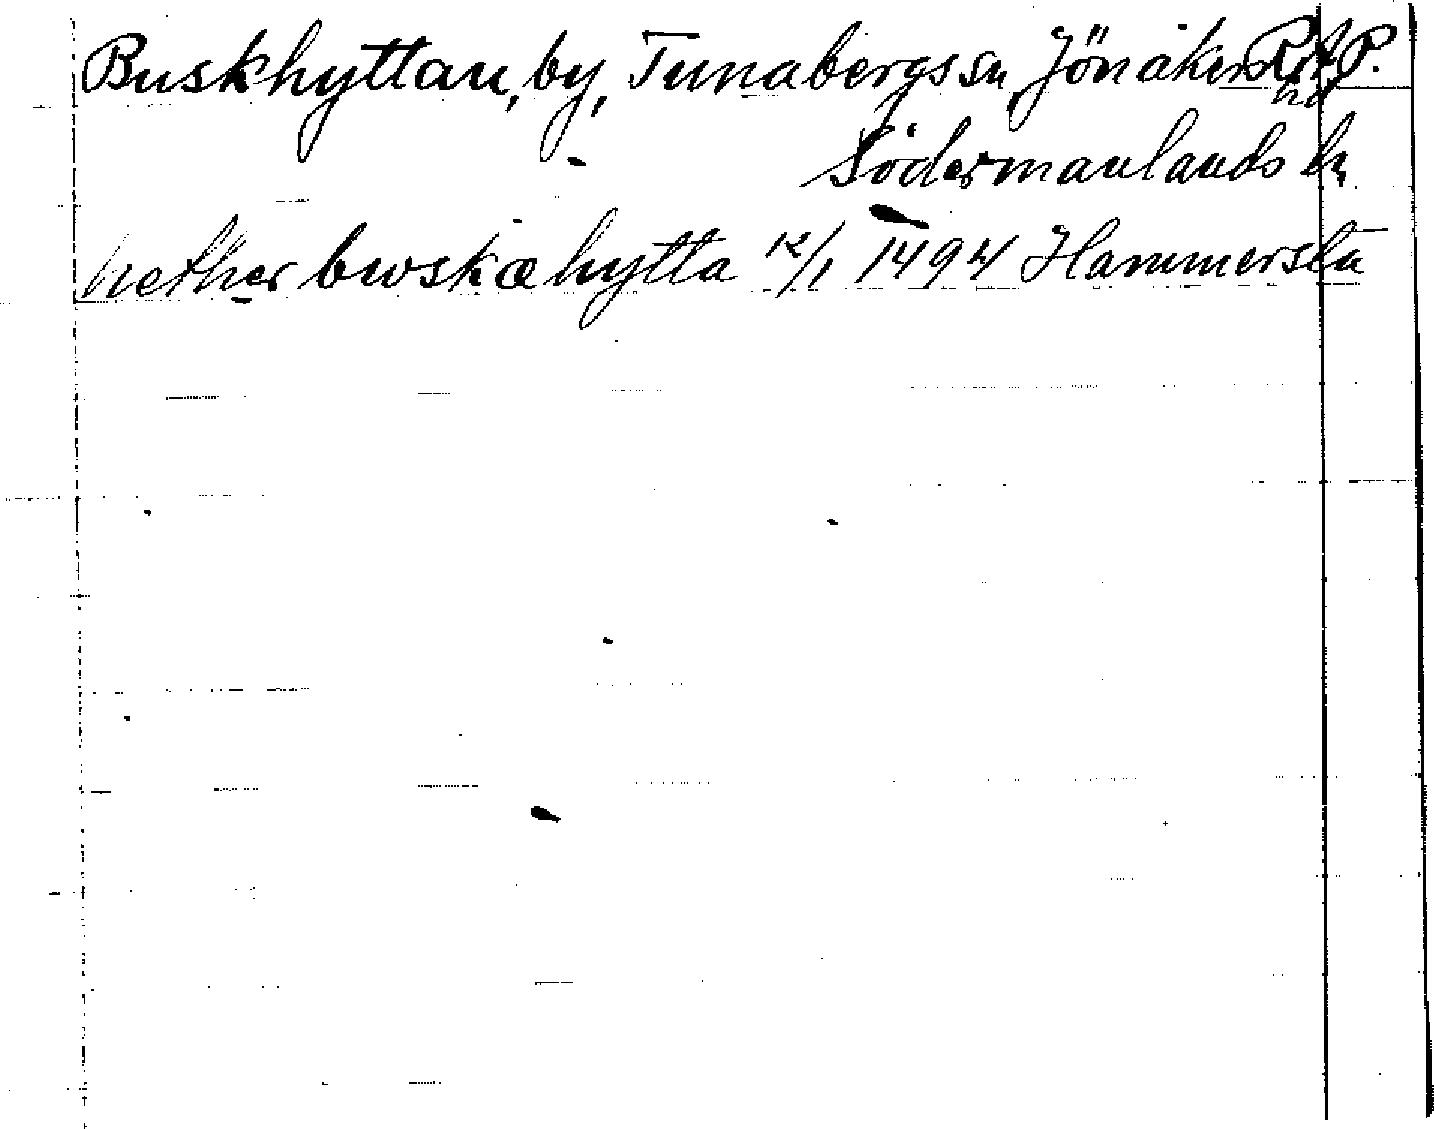 Buskhyttan, by, Tunabergs sn, Jönåkers hd R.A.P.
Södermanlands ln
nether bwskæhytta 12/1 1494 Hammersta